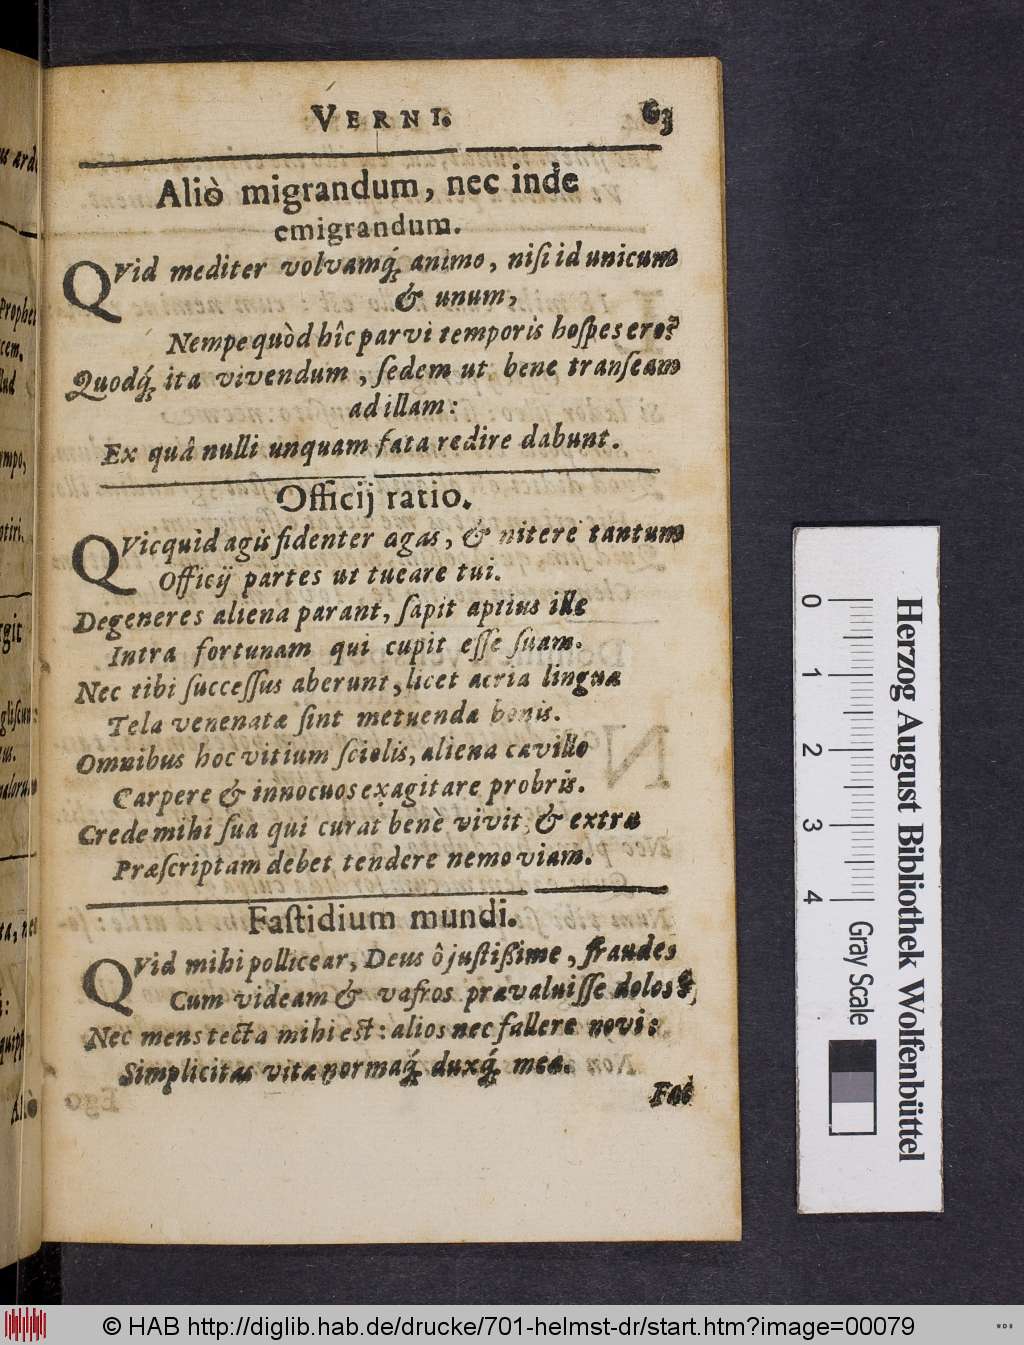 VERNI. 63
Aliò migrandum, nec inde
emigrandum.
QVid mediter volvamq́; animo, niſi id unicum
& unum,
Nempe quòd hîc parvi temporis hoſpes ero?
Quodq́; ita vivendum, ſedem ut bene tranſeam
ad illam:
Ex quâ nulli unquam fata redire dabunt.
Officij ratio.
QVicquid agis fidenter agas, & nitere tantum
Officij partes ut tueare tui.
Degeneres aliena parant, ſapit aptius ille
Intra fortunam qui cupit eſſe ſuam.
Nec tibi ſucceſſus aberunt, licet acria linguæ
Tela venenatæ ſint metuenda bonis.
Omnibus hoc vitium ſciolis, aliena cavillo
Carpere & innocuos exagitare probris.
Crede mihi ſua qui curat benè vivit, & extra
Præſcriptam debet tendere nemo viam.
Faſtidium mundi.
QVid mihi pollicear, Deus ô juſtißime, fraudes
Cum videam & vafros prævaluiſſe dolos?
Nec mens tecta mihi eſt: alios nec fallere novi:
Simplicitas vitæ normaq́; duxq́; meæ.
Fac
us arde
Prophet
cem.
lud
empo,
otiri.
rgit
gliſcunt
us.
malorum
ta, nec
quipp
Aliò
0 1 2 3 4
Gray Scale
Herzog August Bibliothek Wolfenbüttel
© HAB http://diglib.hab.de/drucke/701-helmst-dr/start.htm?image=00079
WDB